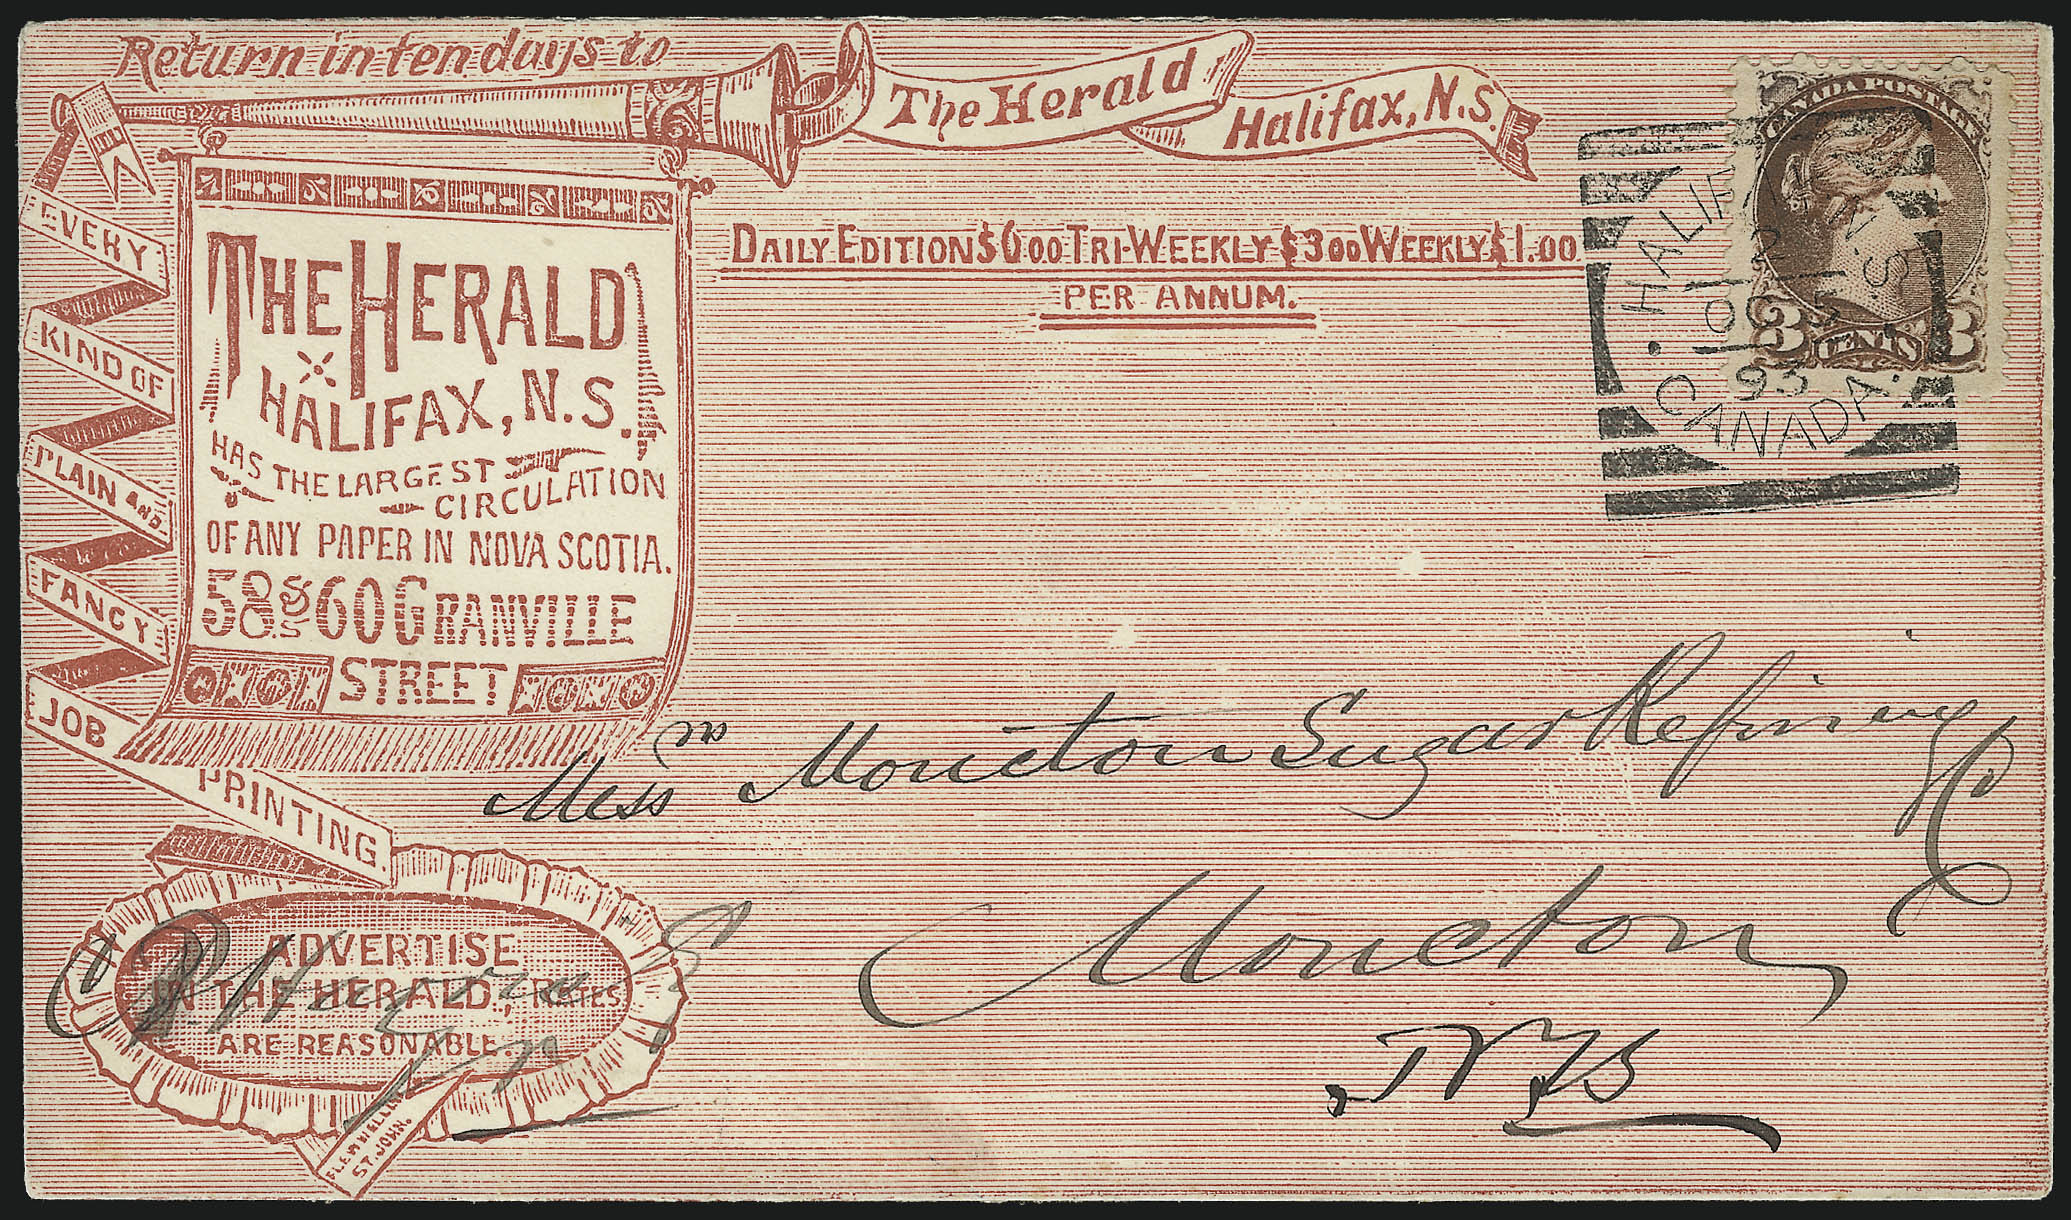 Return in ten days to
The Herald
Halifax, N.S.
CANADA POSTAGE
3 CENTS 3
HALIFAX N.S.
OC 5
93
CANADA.
DAILY EDITION $6.00 TRI-WEEKLY $3.00 WEEKLY $1.00
PER ANNUM.
THE HERALD
HALIFAX, N.S.
HAS THE LARGEST
CIRCULATION
OF ANY PAPER IN NOVA SCOTIA.
58 & 60 GRANVILLE
STREET
EVERY
KIND OF
PLAIN AND
FANCY
JOB
PRINTING.
ADVERTISE
IN THE HERALD, RATES
ARE REASONABLE.
ST. JOHN.
Messrs Moncton Sugar Refining Co
Moncton
NB